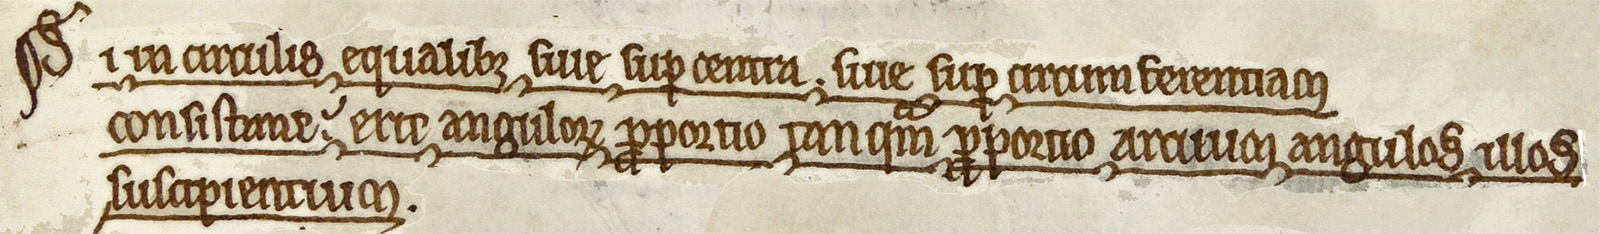 Si in circulis equalibꝫ siue suꝑ centra . siue suꝑ circumferentiam
consistant ; erit anguloꝝ ꝓportio tanqᷓm ꝓportio arcuum angulos illos
suscipientium .